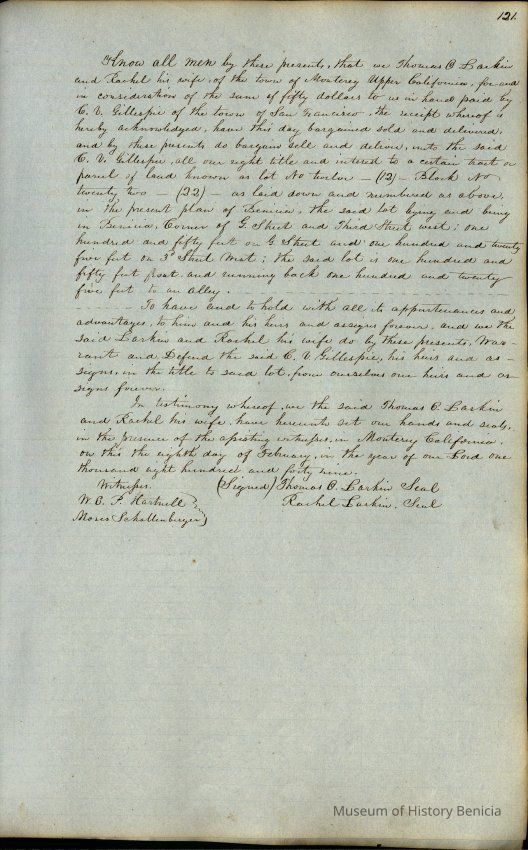 121.
Know all men by these presents, that we Thomas O. Larkin
and Rachel his wife, of the town of Monterey Upper California, for and
in consideration of the sum of fifty dollars to us in hand paid by
C. V. Gillespie of the town of San Francisco, the receipt whereof is
hereby acknowledged, have this day bargained sold and delivered,
and by these presents do bargain sell and deliver, unto the said
C. V. Gillespie, all our right title and interest to a certain tract or
parcel of land known as lot No twelve - (12) - Block No
twenty two - (22) - as laid down and numbered as above,
in the present plan of Benicia, the said lot lying and being
in Benicia Corner of G. Street and Third Street west; one
hundred and fifty feet on G Street and one hundred and twenty
five feet on 3d Street West; the said lot is one hundred and
fifty feet front and running back one hundred and twenty
five feet to an alley.
To have and to hold with all its appurtenances and
advantages, to him and his heirs and assigns forever, and we the
said Larkin and Rachel his wife do by these presents, War-
rant and Defend the said C. V. Gillespie, his heirs and as-
signs, in the title to said lot, from ourselves our heirs and as
signs forever.
In testimony whereof, we the said Thomas O. Larkin
and Rachel his wife, have hereunto set our hands and seals,
in the presence of the assisting witnesses, in Monterey California,
on this the eighth day of February, in the year of our Lord one
thousand eight hundred and forty nine.
Witnesses. (Signed) Thomas O. Larkin Seal
W. E. P. Hartnell Rachel Larkin. Seal
Moses Schallenberger
Museum of History Benicia